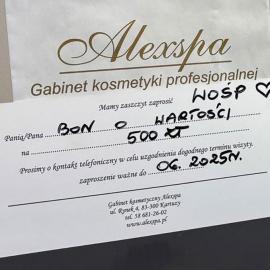 Alexspa
Gabinet kosmetyki profesjonalnej
Mamy zaszczyt zaprosić WOŚP ♡
Panią/Pana BON O WARTOŚCI
na 500 ZŁ
Prosimy o kontakt telefoniczny w celu uzgodnienia dogodnego terminu wizyty.
zaproszenie ważne do 06.2025r.
Gabinet kosmetyczny Alexspa
ul. Rynek 4, 83-300 Kartuzy
tel. 58 681-26-02
www.alexspa.pl